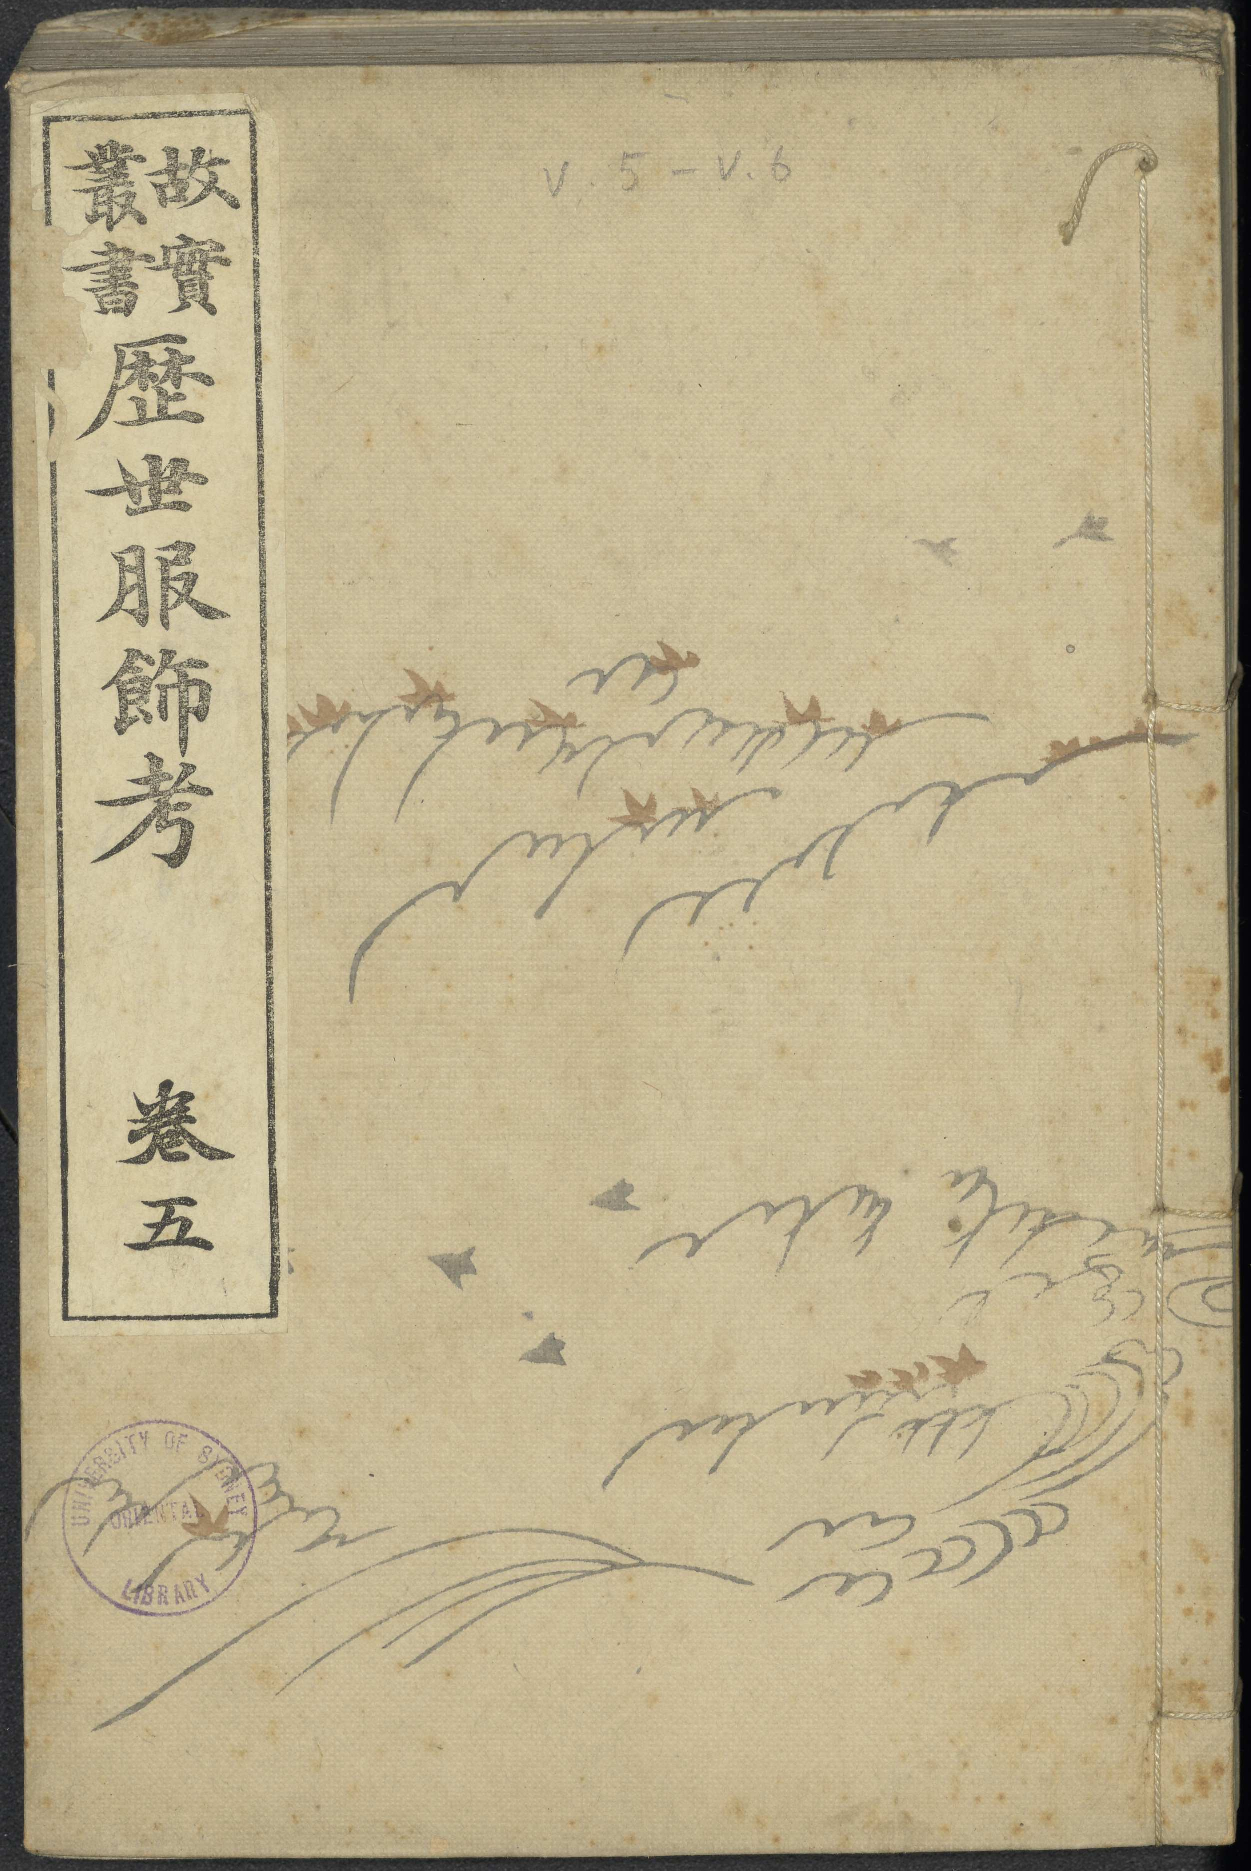 故實
叢書
歴世服飾考
卷五
V. 5 - V. 6
UNIVERSITY OF SYDNEY
ORIENTAL
LIBRARY